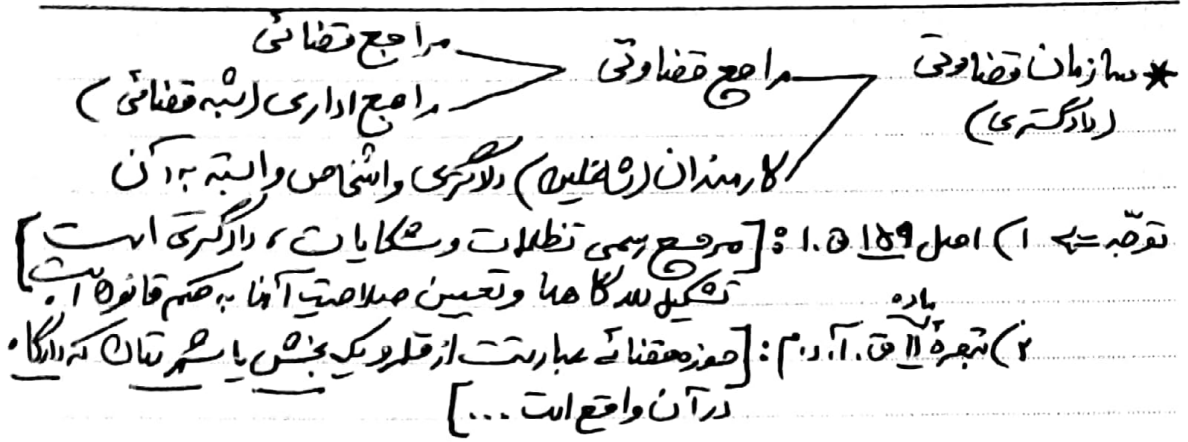 مراجع قضائی
* سازمان قضاوتی مراجع قضاوتی
(دادگستری) مراجع اداری (شبه قضائی)
کارمندان (شاغلین) دادگستری و اشخاص وابسته به آن
توجّه ⇐ ۱) اصل ۱۵۹ ق.ا : [مرجع رسمی تظلمات و شکایات، دادگستری است
تشکیل دادگاه ها و تعیین صلاحیت آنها به حکم قانون است.]
ماده
۲) تبصرهٔ ۱۱ ق.آ.د.م : [حوزه قضائی عبارتست از قلمرو یک بخش یا شهرستان که دادگاه
در آن واقع است ...]